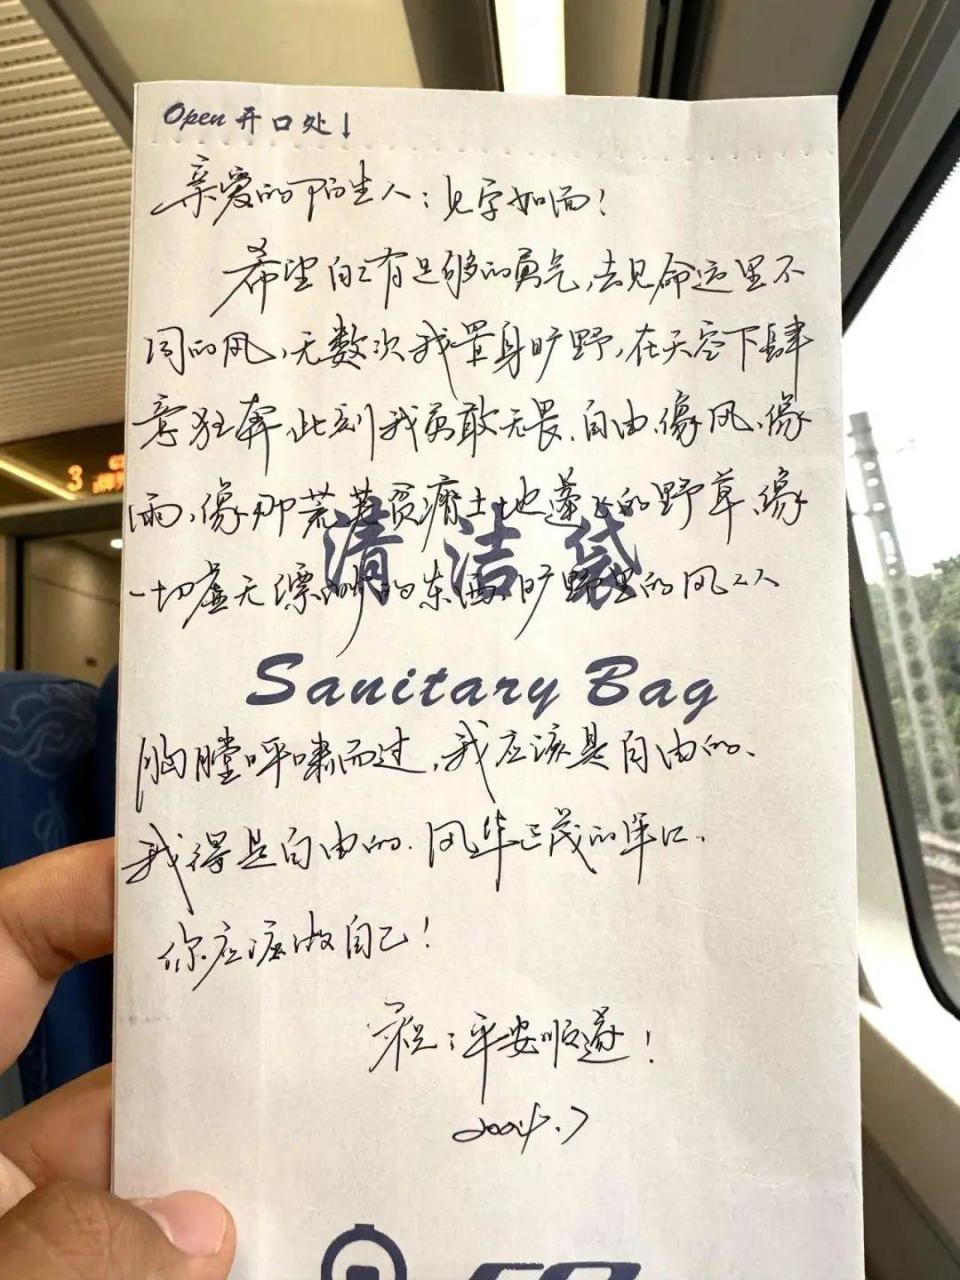 Open 开口处↓
亲爱的陌生人：见字如面！
希望自己有足够的勇气，去见命运里不
同的风，无数次我置身旷野，在天空下肆
意狂奔，此刻我勇敢无畏、自由，像风、像
雨，像那荒芜贫瘠土地蓬飞的野草，像
清洁袋
一切虚无漂渺的东西，旷野里的风
Sanitary Bag
胸膛呼啸而过，我应该是自由的、
我得是自由的、风华正茂的年纪、
你应该做自己！
祝：平安顺遂！